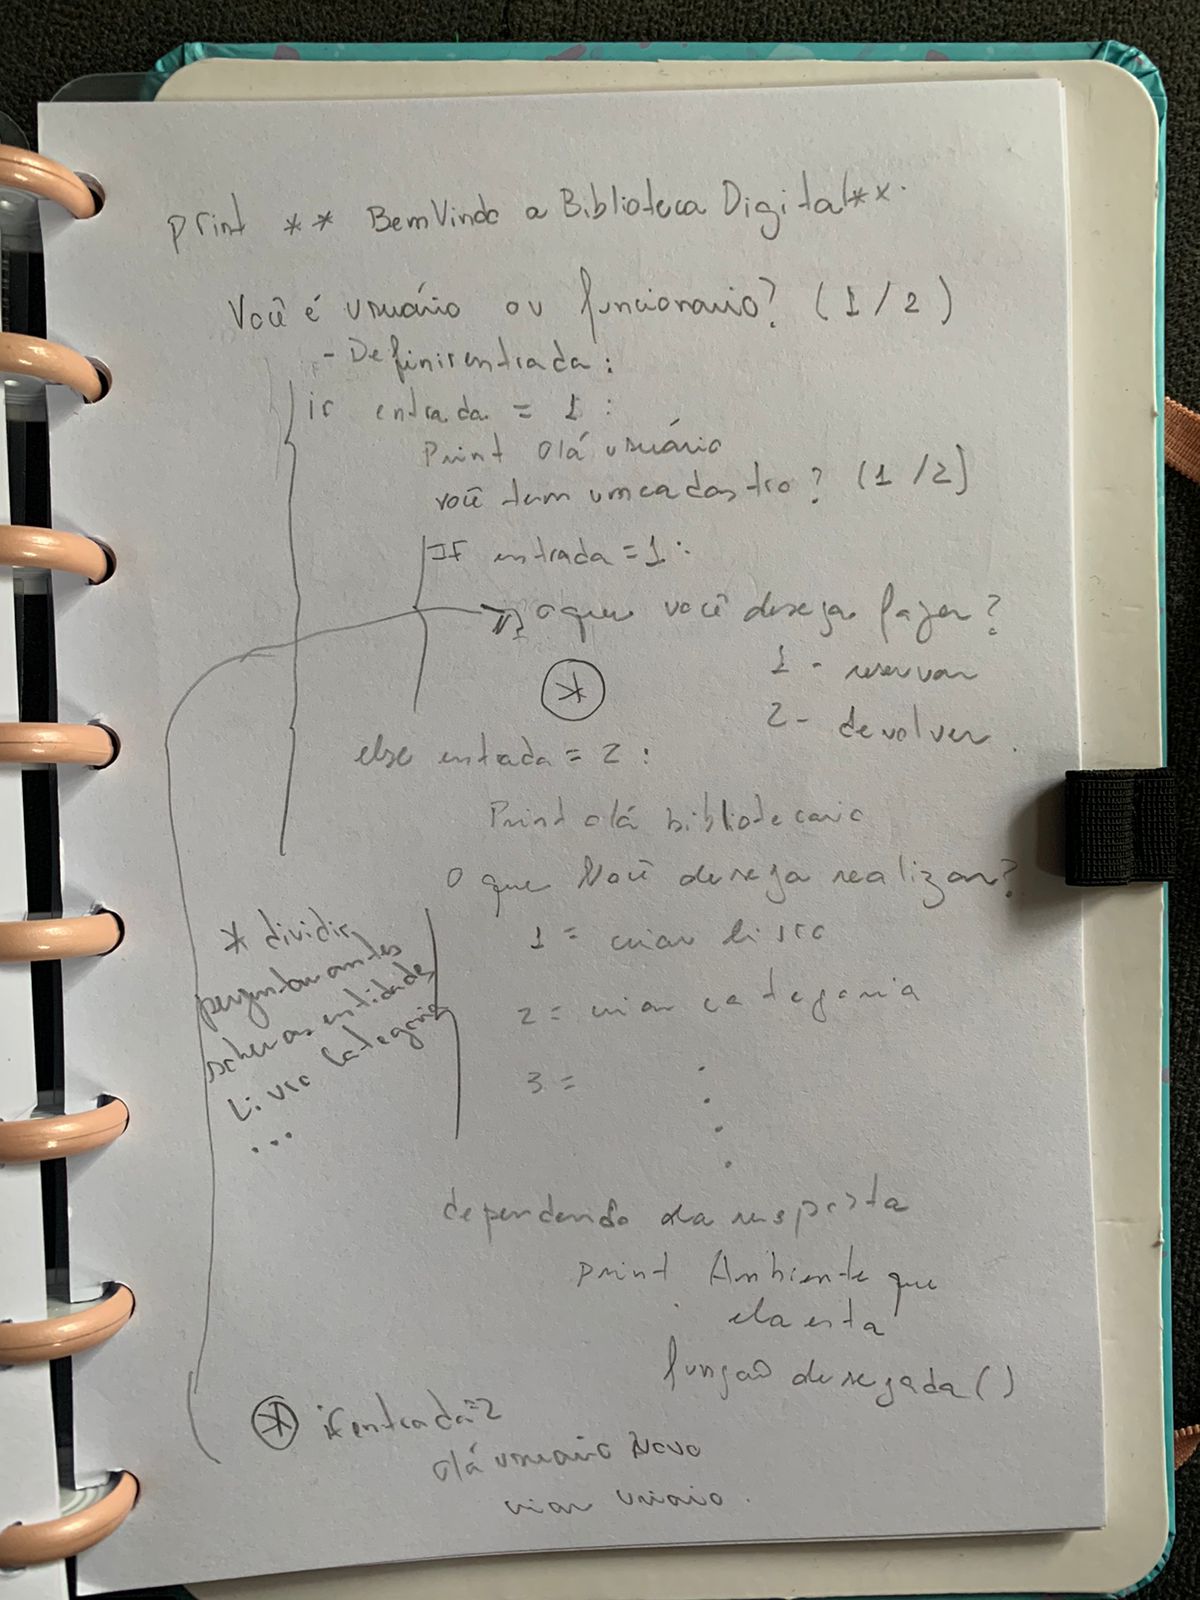 Print ** BemVindo a Biblioteca Digital**.
Você é usuário ou funcionario? (1/2)
- Definir entrada:
if entrada = 1:
Print Olá usuário
você tem um cadastro? (1/2)
IF entrada = 1:
o que você deseja fazer?
1 - reservar
*
2 - devolver.
else entrada = 2:
Print olá bibliotecario
O que você deseja realizar?
1 = criar livro
2 = criar categoria
3 =
* dividir
perguntar antes
sobre as entidades
Livro Categoria
...
dependendo da resposta
print Ambiente que
ela esta
função desejada()
* if entrada=2
Olá usuario Novo
criar usuario.